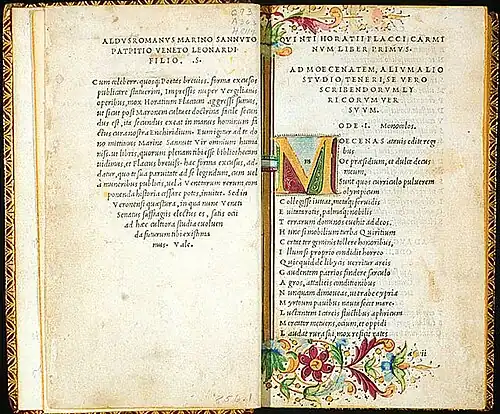 ALDVS ROMANVS MARINO SANNVTO
PATRITIO VENETO LEONARDI
FILIO. .S.
Cum celeberr. quosq; Poetas breviss. forma excusos
publicare statuerim, Impressis nuper Vergilianis
operibus, mox Horatium Flaccum aggressi sumus,
ut sicut post Maronem cultu et doctrina facile secun
dus est, ita secundus exeat in manus hominum fi
ctus cura nostra Enchiridion. Eum igitur ad te do
no mittimus Marine Sannute Vir omnium huma
niss. ut libris, quorum plenam tibi esse bibliothecam
vidimus, et Flaccus breviss. hac forma excusus, ad
datur, quo te sua parvitate ad se legendum, cum vel
à muneribus publicis, vel à Venetarum rerum com
ponenda historia cessare potes, invitet. Sed in
Veronensi quæstura, in qua nunc Veneti
Senatus suffragiis electus es, satis ocii
ad hæc cultiora studia evoluen
da futurum tibi existima
mus. Vale.
QVINTI HORATII FLACCI CARMI
NVM LIBER PRIMVS.
AD MOECENATEM, ALIVM ALIO
STVDIO TENERI, SE VERO
SCRIBENDORVM LY
RICORVM VER
SVVM.
ODE .I. Monocolos.
MOECENAS atavis edite regi
bus,
O et præsidium, et dulce decus
meum,
Sunt quos curriculo pulverem
olympicum
Collegisse iuvat, metaq; fervidis
Evitata rotis, palmaq; nobilis
Terrarum dominos evehit ad deos.
Hunc si mobilium turba Quiritium
Certat tergeminis tollere honoribus,
Illum si proprio condidit horreo
Quicquid de libycis verritur areis
Gaudentem patrios findere sarculo
Agros, attalicis conditionibus
Nunquam dimoveas, ut trabe cypria
Myrtoum pavidus nauta secet mare.
Luctantem Icareis fluctibus aphricum
Mercator metuens, ocium, et oppidi
Laudat rura sui, mox reficit rates
ii